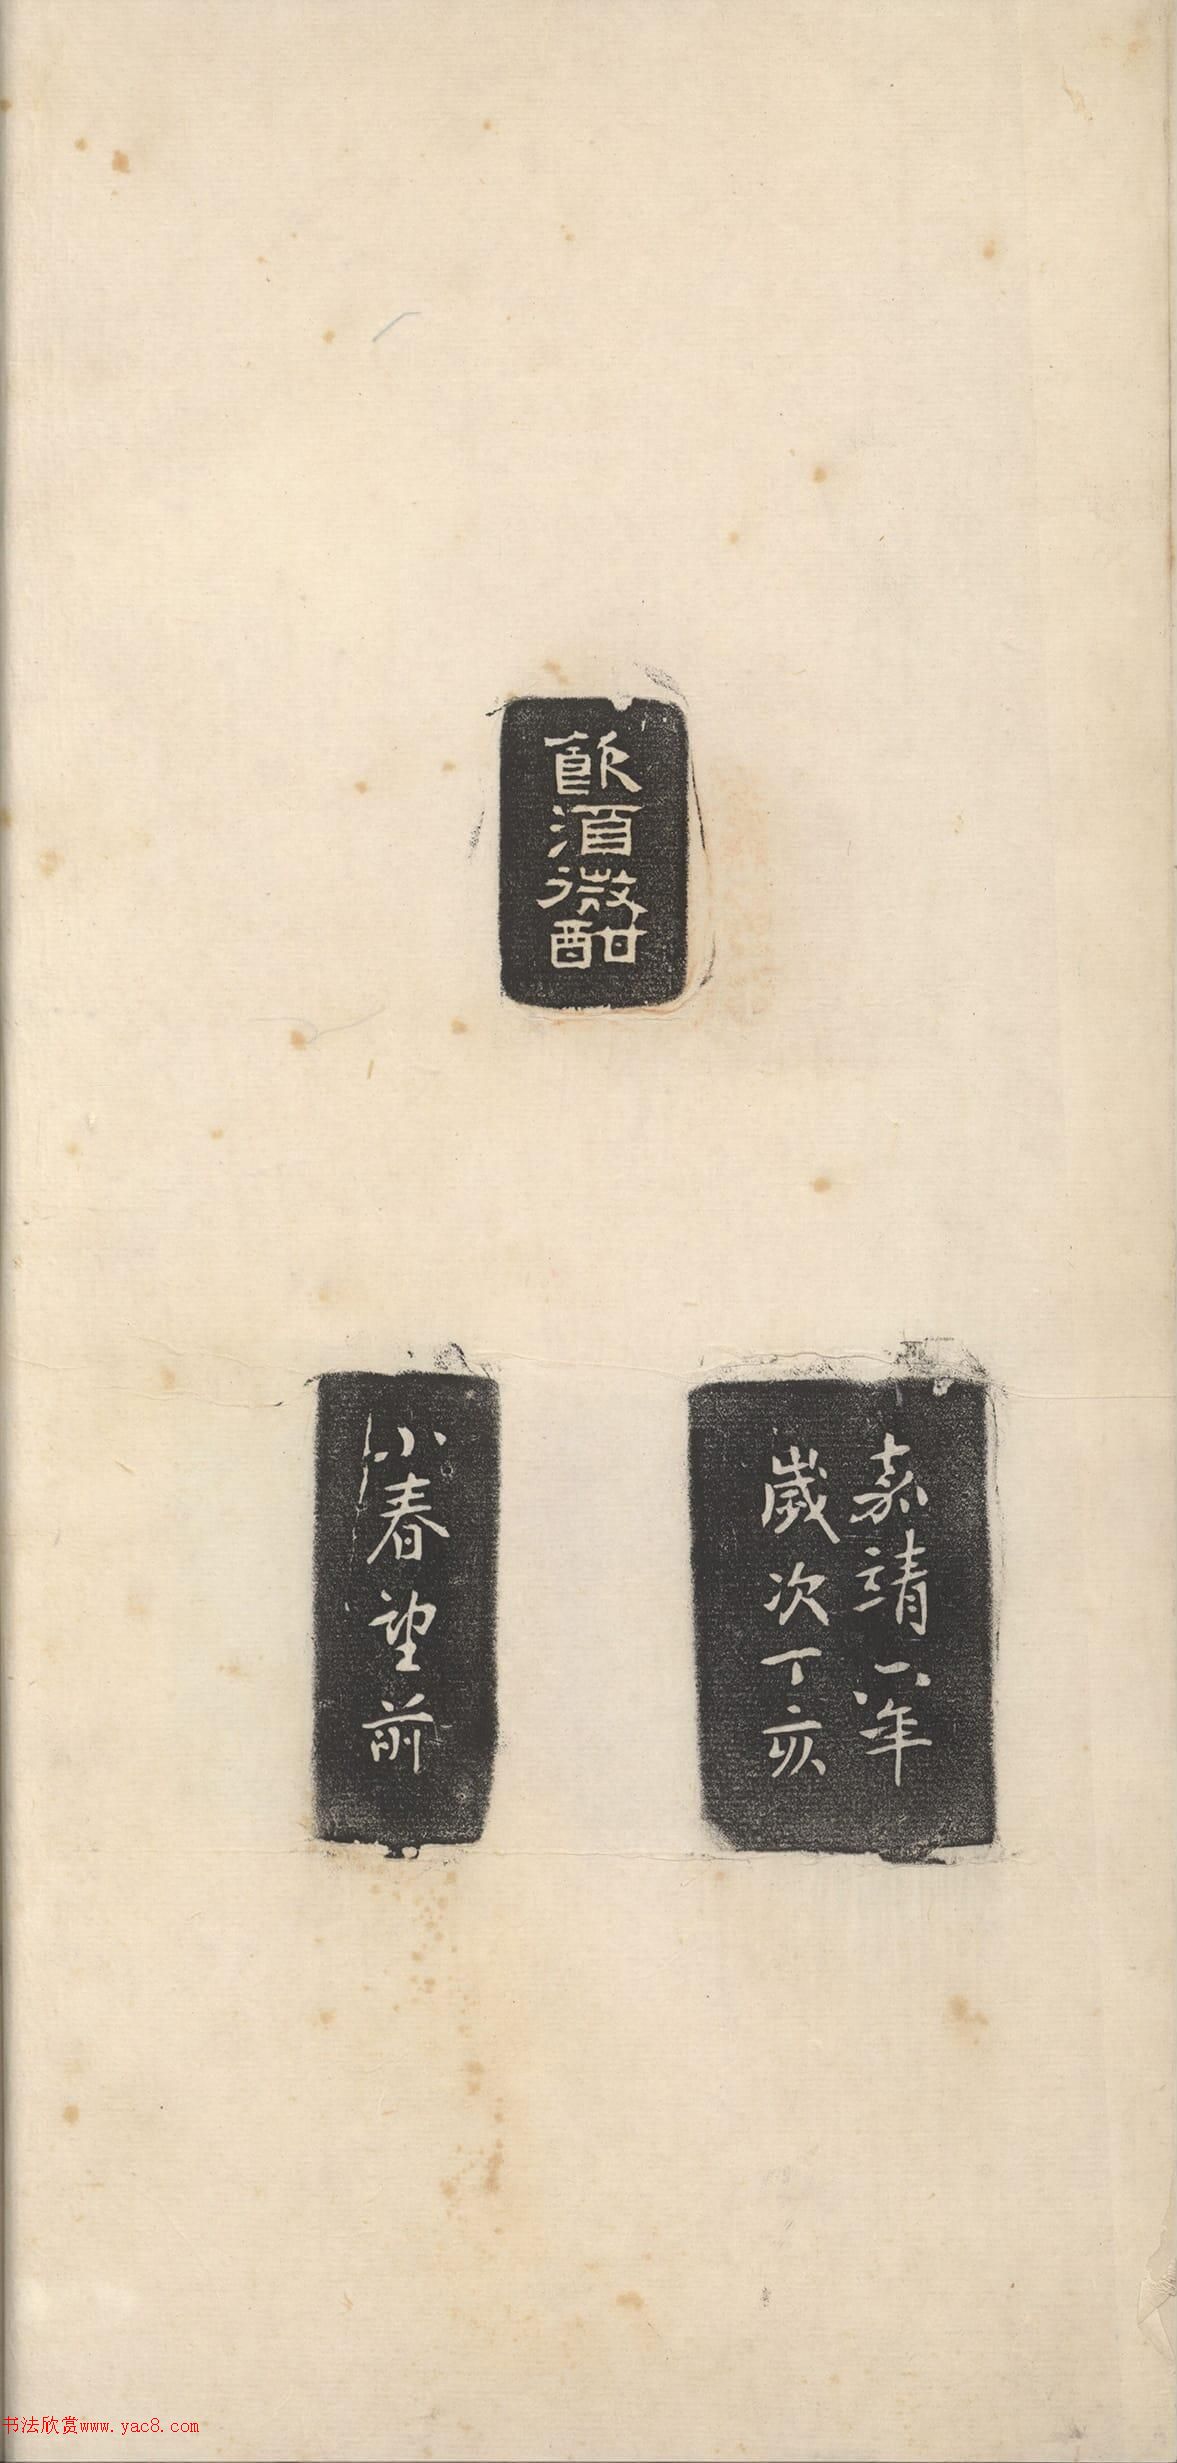 飲酒微酣
嘉靖六年
歲次丁亥
小春望前
书法欣赏www.yac8.com